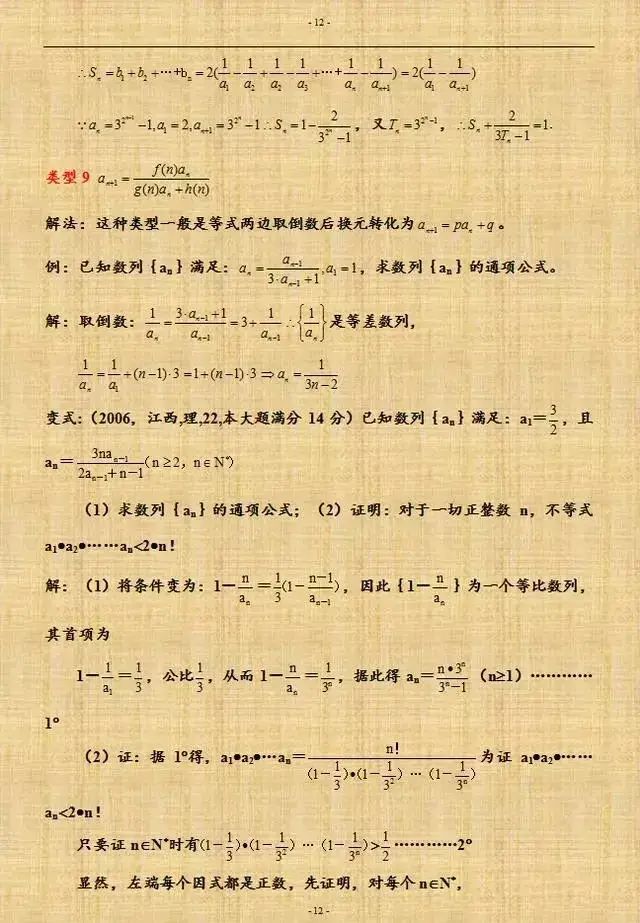 - 12 -
∴S_n = b_1 + b_2 + ⋯+b_n = 2(1/a_1 - 1/a_2 + 1/a_2 - 1/a_3 + ⋯ + 1/a_n - 1/a_{n+1}) = 2(1/a_1 - 1/a_{n+1})
∵a_n = 3^{2^{n-1}} - 1, a_1 = 2, a_{n+1} = 3^{2^n} - 1 ∴S_n = 1 - 2/(3^{2^n} - 1)，又T_n = 3^{2^n - 1}，∴S_n + 2/(3T_n - 1) = 1.
类型 9 a_{n+1} = f(n)a_n/(g(n)a_n + h(n))
解法：这种类型一般是等式两边取倒数后换元转化为 a_{n+1} = pa_n + q 。
例：已知数列｛a_n｝满足：a_n = a_{n-1}/(3·a_{n-1} + 1), a_1 = 1，求数列｛a_n｝的通项公式。
解：取倒数：1/a_n = (3·a_{n-1} + 1)/a_{n-1} = 3 + 1/a_{n-1} ∴{1/a_n}是等差数列，
1/a_n = 1/a_1 + (n-1)·3 = 1 + (n-1)·3 ⇒ a_n = 1/(3n-2)
变式：（2006，江西,理,22,本大题满分 14 分）已知数列｛a_n｝满足：a_1＝3/2，且
a_n＝3na_{n-1}/(2a_{n-1}＋n－1)(n ≥ 2，n ∈ N*)
（1）求数列｛a_n｝的通项公式；（2）证明：对于一切正整数 n，不等式
a_1•a_2•……a_n<2•n！
解：（1）将条件变为：1－n/a_n＝1/3(1－(n－1)/a_{n-1})，因此｛1－n/a_n｝为一个等比数列，
其首项为
1－1/a_1＝1/3，公比1/3，从而 1－n/a_n＝1/3^n，据此得 a_n＝n•3^n/(3^n－1)（n≥1）…………
1°
（2）证：据 1°得，a_1•a_2•…a_n＝n！/((1－1/3)•(1－1/3^2) … (1－1/3^n)) 为证 a_1•a_2•……
a_n<2•n！
只要证 n∈N*时有(1－1/3)•(1－1/3^2) … (1－1/3^n)>1/2…………2°
显然，左端每个因式都是正数，先证明，对每个 n∈N*，
- 12 -